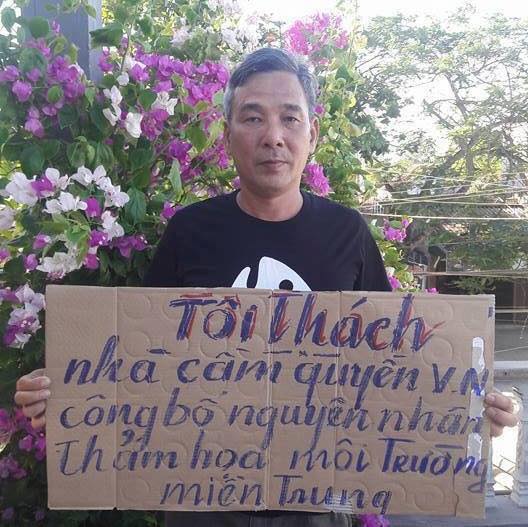 Tôi Thách
nhà cầm quyền V.N
công bố nguyên nhân
thảm họa môi Trường
miền Trung